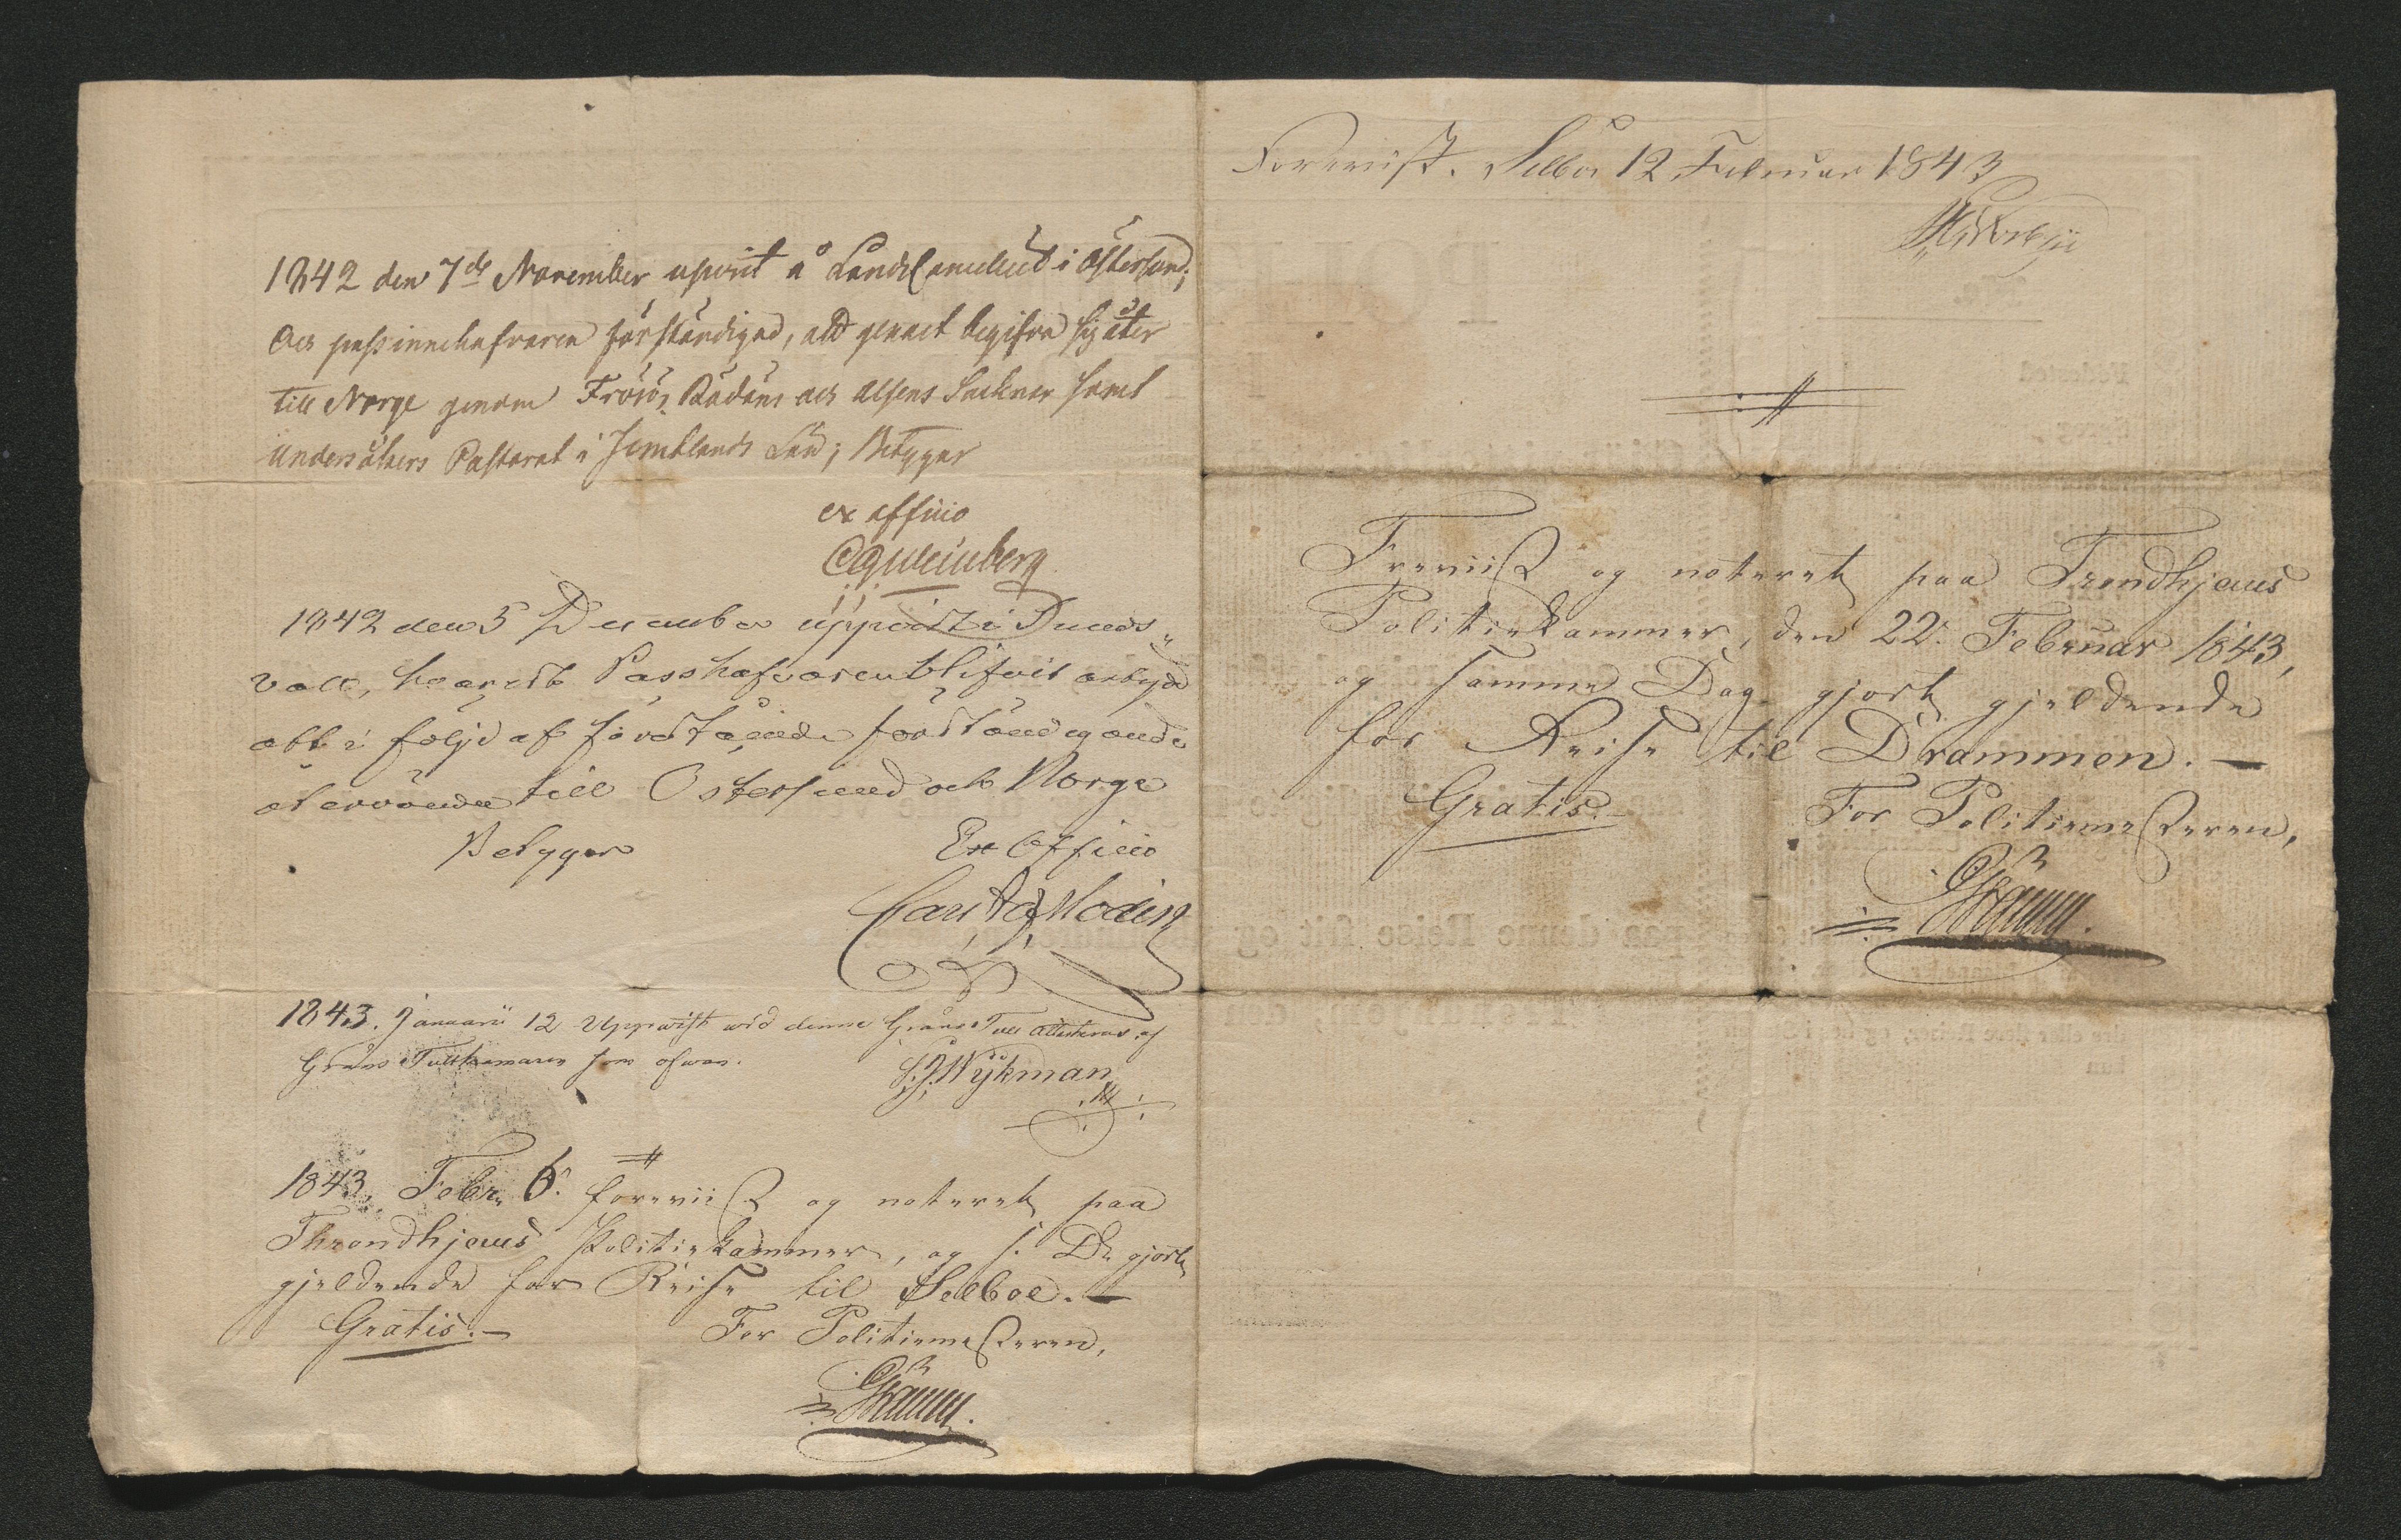 1842 den 7de November upvist å Landscancelliet i Östersund;
och passinnehafvaren förständigad, att genast begifva sig åter
till Norge genom Frösö, Rödöns och Alsens Socknar samt
Undersåkers Pastorat i Jemtlands Län; Betygar
ex officio
1842 den 5 December uppvist i Sunds-
vall, hvarest Passhafvaren blifvit ålagd
att i följd af förestående förständigande
återvända till Östersund och Norge
Betygar Ex Officio
Carl Aq Modin
1843. Januarii 12 Uppvist vid denna Gräns Tull attesteras af
Gräns Tull som ofvan.
Wykman
1843, Febr. 6. foreviist og noteret paa
Throndhjems Politiekammer, og s. D. gjort
gjeldende for Reise til Selboe. —
Gratis. — For Politiemesteren,
Forevist. Selbo 12 Februar 1843
Foreviist og noteret paa Trondhjems
Politiekammer, den 22. Februar 1843,
og samme Dag gjort gjeldende
for Reise til Drammen. —
Gratis. — For Politiemesteren,